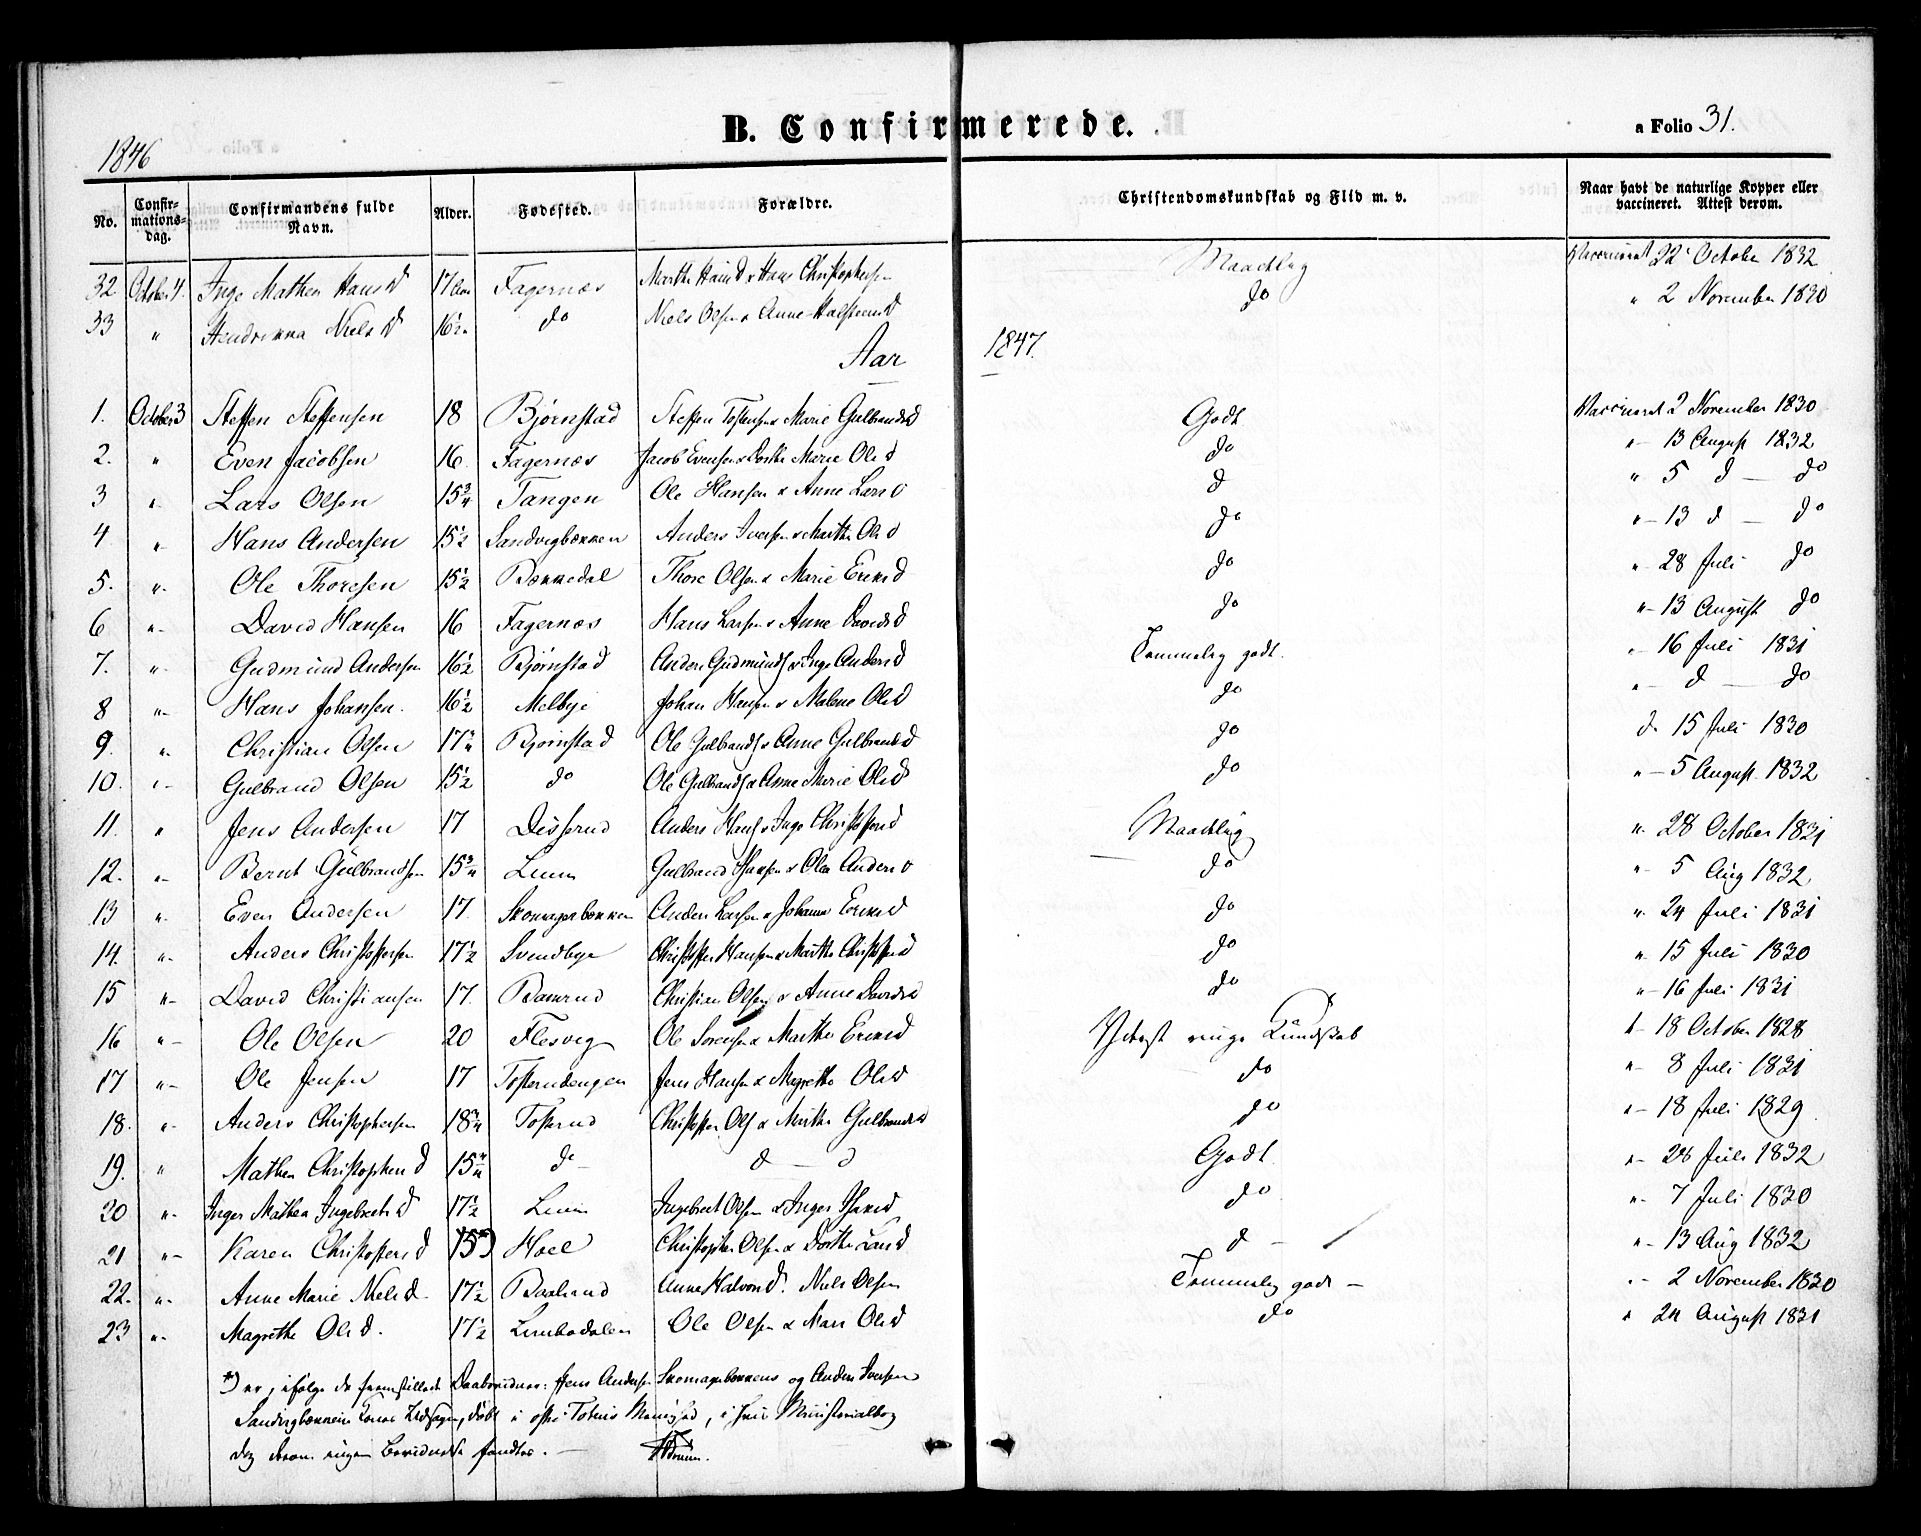 B. Confirmerede.
a Folio 31.
1846
No. Confirmationsdag. Confirmandens fulde Navn. Alder. Fødested. Forældre. Christendomskundskab og Flid m. v. Naar havt de naturlige Kopper eller vaccineret. Attest derom.
32 October 4. Inge Mathea Hansd 17 Fagernæs Marthe Hansd & Hans Christophersen Maadelig Vaccineret 22 October 1832
33 " Hendrikka Nielsd 16½ do Niels Olsen & Anne Halsteensd do " 2 November 1830
Aar 1847.
1. October 3 Steffen Steffensen 18 Bjørnstad Steffen Tostensen & Marie Gulbrandsd Godt Vaccineret 2 November 1830
2. " Even Jacobsen 16 Fagernæs Jacob Evensen & Dorthe Marie Olsd do " 13 August 1832
3 " Lars Olsen 15¾ Tangen Ole Hansen & Anne Larsd d " 5 d – do
4 " Hans Andersen 15½ Sandvigbækken Anders Iversen & Marthe Olsd do " 13 d – do
5. " Ole Thoresen 15½ Bækkedal Thore Olsen & Marie Ericsd do " 28 Juli do
6 " David Hansen 16 Fagernæs Hans Larsen & Anne Davidsd do " 13 August do
7. " Gudmund Andersen 16½ Bjørnstad Anders Gudmunds & Inge Andersd Temmelig godt. " 16 Juli 1831
8 " Hans Johansen. 16½ Melbye Johan Hansen & Malene Olsd do " d – do
9. " Christian Olsen 17¾ Bjørnstad Ole Gulbrands & Anne Gulbrandsd do d. 15 Juli 1830
10. " Gulbrand Olsen 15½ do Ole Gulbrands & Anne Marie Olsd do " 5 August 1832
11. " Jens Andersen 17 Disserud Anders Hans & Inge Christoffersd Maadelig " 28 October 1831
12. " Bernt Gulbrandsen 15¾ Liun Gulbrand Hansen & Olea Andersd do " 5 Aug 1832
13 " Even Andersen 17. Skomagerbækken Anders Larsen & Johanne Ericsd do " 24 Juli 1831
14. " Anders Christoffersen 17½ Svendbye Christoffer Hansen & Marthe Christoffersd do " 15 Juli 1830
15 " David Christiansen 17. Baserud Christian Olsen & Anne Davidsd do " 16 Juli 1831
16 " Ole Olsen 20 Flesvig Ole Sørensen & Marthe Ericsd Yderst ringe Kundskab " 18 October 1828
17 " Ole Jensen 17 Tosterudengen Jens Hansen & Magrethe Olsd do " 8 Juli 1831
18. " Anders Christophersen 18¾ Tosterud Christoffer Ols & Marthe Gulbrandsd do " 18 Juli 1829
19. " Mathea Christophersd 15¾ do d – d Godt " 28 Juli 1832
20 " Inger Mathea Ingebretsd 17½ Liun Ingebret Olsen & Inger do " 7 Juli 1830
21 " Karen Christoffersd 15*) Hoel Christopher Olsen & Dorthe Larsd d – " 13 Aug 1832
22. " Anne Marie Nielsd 17½ Baaserud Anne Halvorsd. Niels Olsen Temmelig godt – " 2 November 1830
23 " Magrethe Olsd. 17½ Limbodalen Ole Olsen & Mari Olsd do " 24 August 1831
*) er, ifølge de fremstillede Daabsvidner: Jens Andersen Skomagerbækkens og Anders Iversen
Sandvigbækkens Kones Udsagn, døbt i østre Totens Menighed, i hvis Ministerialbog
dog derom ingen Bevidnelse fandtes. –